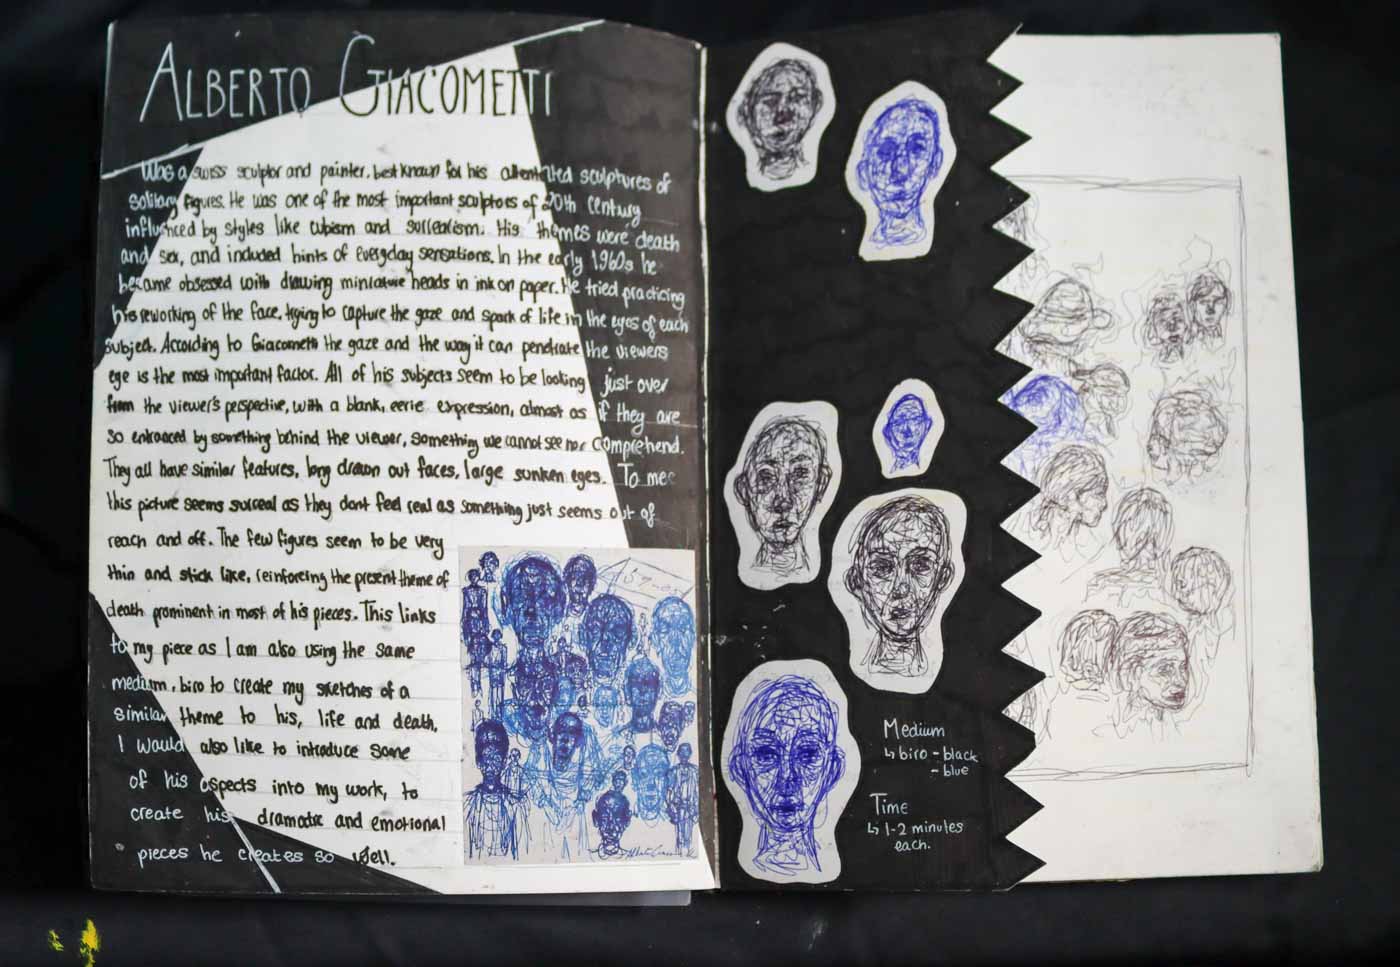 ALBERTO GIACOMETTI
Was a swiss sculptor and painter, best known for his attentuated sculptures of
solitary figures. He was one of the most important sculptors of 20th century
influenced by styles like cubism and surrealism. His themes were death
and sex, and included hints of everyday sensations. In the early 1960s he
became obsessed with drawing miniature heads in ink on paper. He tried practicing
his reworking of the face, trying to capture the gaze and spark of life in the eyes of each
subject. According to Giacometti the gaze and the way it can penetrate the viewers
eye is the most important factor. All of his subjects seem to be looking just over
from the viewer's perspective, with a blank, eerie expression, almost as if they are
so entranced by something behind the viewer, something we cannot see nor comprehend.
They all have similar features, long drawn out faces, large sunken eyes. To me
this picture seems surreal as they dont feel real as something just seems out of
reach and off. The few figures seem to be very
thin and stick like, reinforcing the present theme of
death prominent in most of his pieces. This links
to my piece as I am also using the same
medium, biro to create my sketches of a
similar theme to his, life and death.
I would also like to introduce some
of his aspects into my work, to
create his dramatic and emotional
pieces he creates so well.
Medium
↳ biro - black
- blue
Time
↳ 1-2 minutes
each.